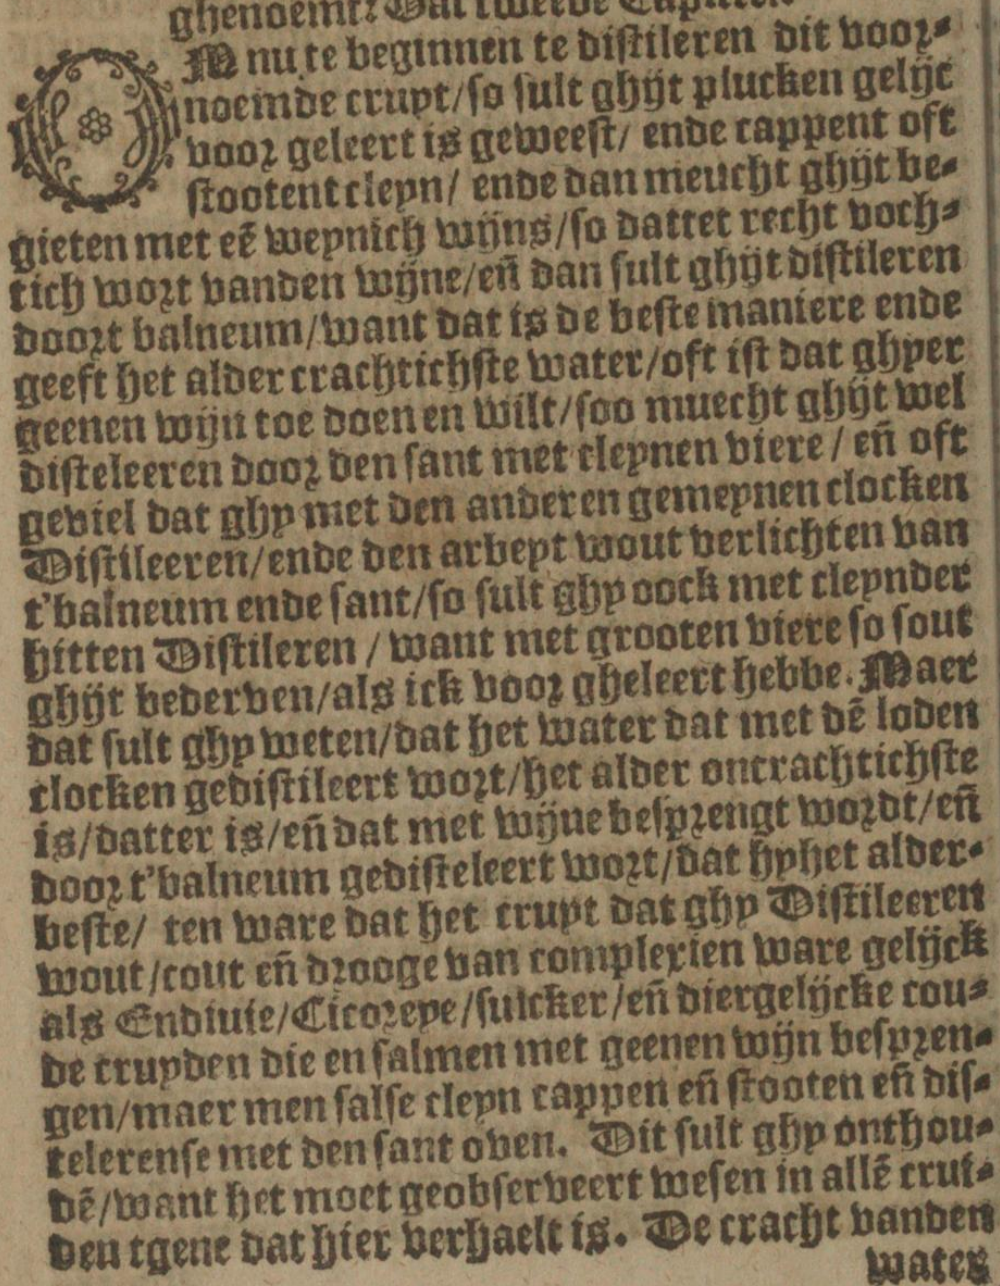 ghenoemt? Dat tweede Capittel.
OM nu te beginnen te distileren dit voor-
noemde cruyt/so sult ghijt plucken gelijc
voor geleert is geweest/ ende cappent oft
stootent cleyn/ ende dan meucht ghijt be-
gieten met eẽ weynich wijns/so dattet recht voch-
tich wort vanden wijne/eñ dan sult ghijt distileren
doort balneum/want dat is de beste maniere ende
geeft het alder crachtichste water/oft ist dat ghyer
geenen wijn toe doen en wilt/soo muecht ghijt wel
disteleeren door den sant met cleynen viere / eñ oft
geviel dat ghy met den anderen gemeynen clocken
Distileeren/ende den arbeyt wout verlichten van
t'balneum ende sant/so sult ghy oock met cleynder
hitten Distileren / want met grooten viere so sout
ghijt bederven/als ick voor gheleert hebbe. Maer
dat sult ghy weten/dat het water dat met dẽ loden
clocken gedistileert wort/het alder oncrachtichste
is/datter is/eñ dat met wijne besprengt wordt/eñ
door t'balneum gedisteleert wort/dat hyhet alder-
beste/ ten ware dat het cruyt dat ghy Distileeren
wout/cout eñ drooge van complexien ware gelijck
als Endiuie/Cicoreye/suicker/eñ diergelijcke cou-
de cruyden die en salmen met geenen wijn bespren-
gen/maer men salse cleyn cappen eñ stooten eñ dis-
telerense met den sant oven. Dit sult ghy onthou-
dẽ/want het moet geobserveert wesen in allẽ crui-
den tgene dat hier verhaelt is. De cracht vanden
water